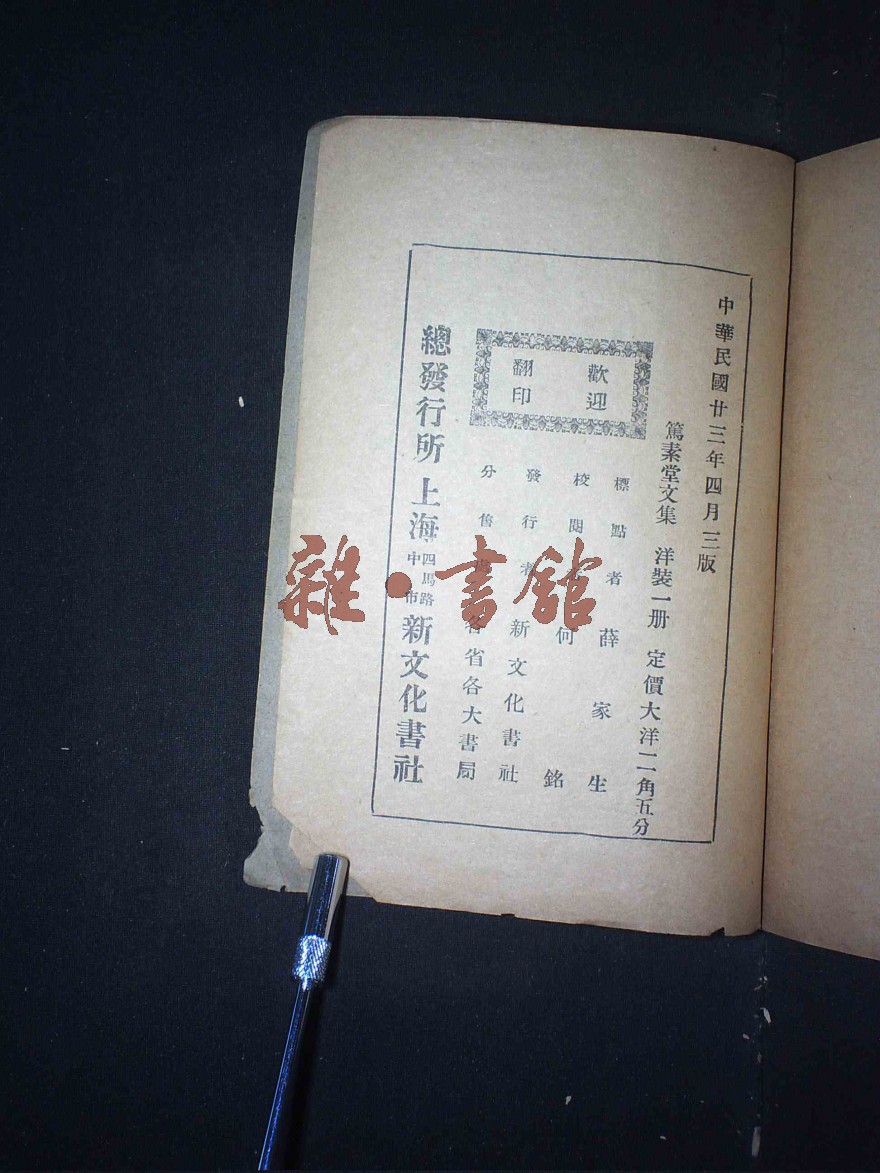 中華民國廿三年四月三版
篤素堂文集 洋裝一册 定價大洋二角五分
歡迎
翻印
標點者 薛家生
校閱 何銘
發行者 新文化書社
分售處 各省各大書局
總發行所 上海 四馬路中市 新文化書社
雜·書館